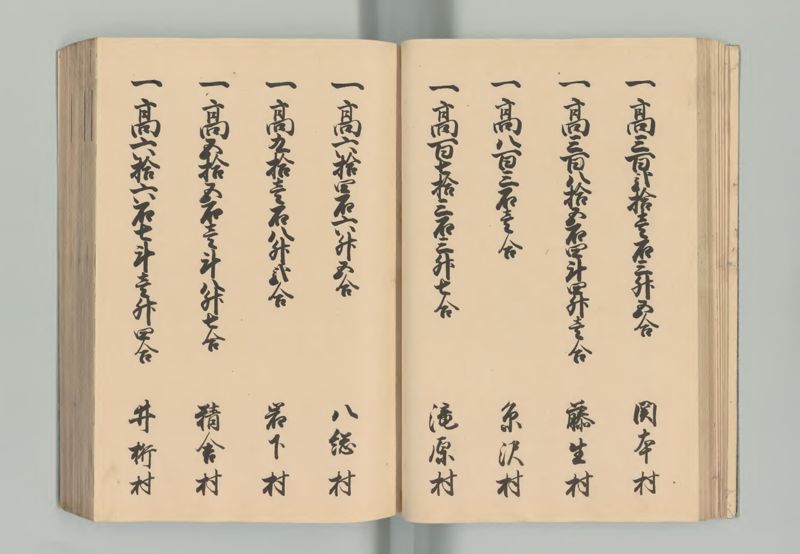 一高三百弐拾壱石三升五合 関本村
一高三百八拾五石四斗四升壱合 藤生村
一高八百三石壱合 糸沢村
一高百七拾三石三升七合 滝原村
一高六拾四石六升五合 八総村
一高九拾壱石八升弐合 岩下村
一高五拾五石壱斗八升七合 精舎村
一高六拾六石七斗壱升四合 井桁村